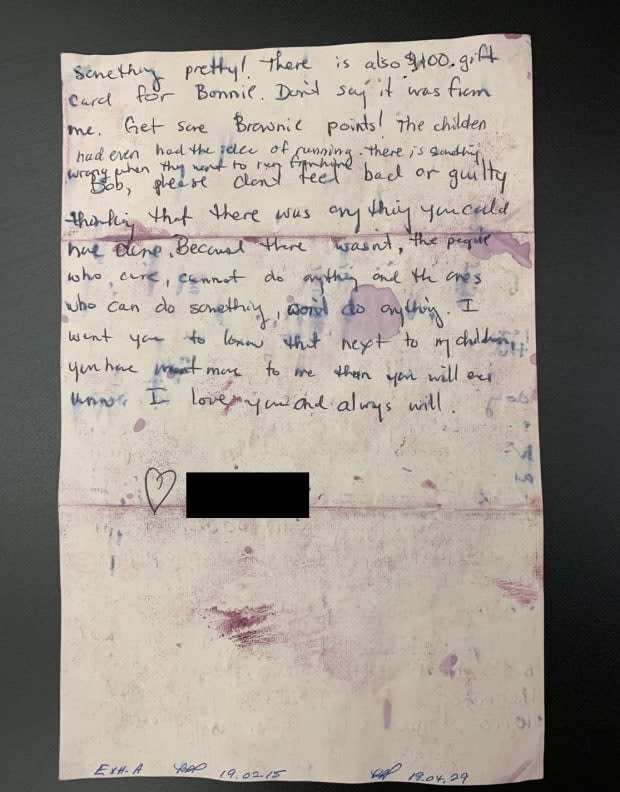 something pretty! There is also $100. gift
card for Bonnie. Don't say it was from
me. Get some Brownie points! The children
had even had the idea of running. There is something
wrong when they want to run from home
Bob, please don't feel bad or guilty
thinking that there was anything you could
have done. Because there wasn't, the people
who care, cannot do anything and the ones
who can do something, won't do anything. I
want you to know that next to my children,
you have meant more to me than you will ever
know. I love you and always will.
EXH. A 19.02.15 19.04.29